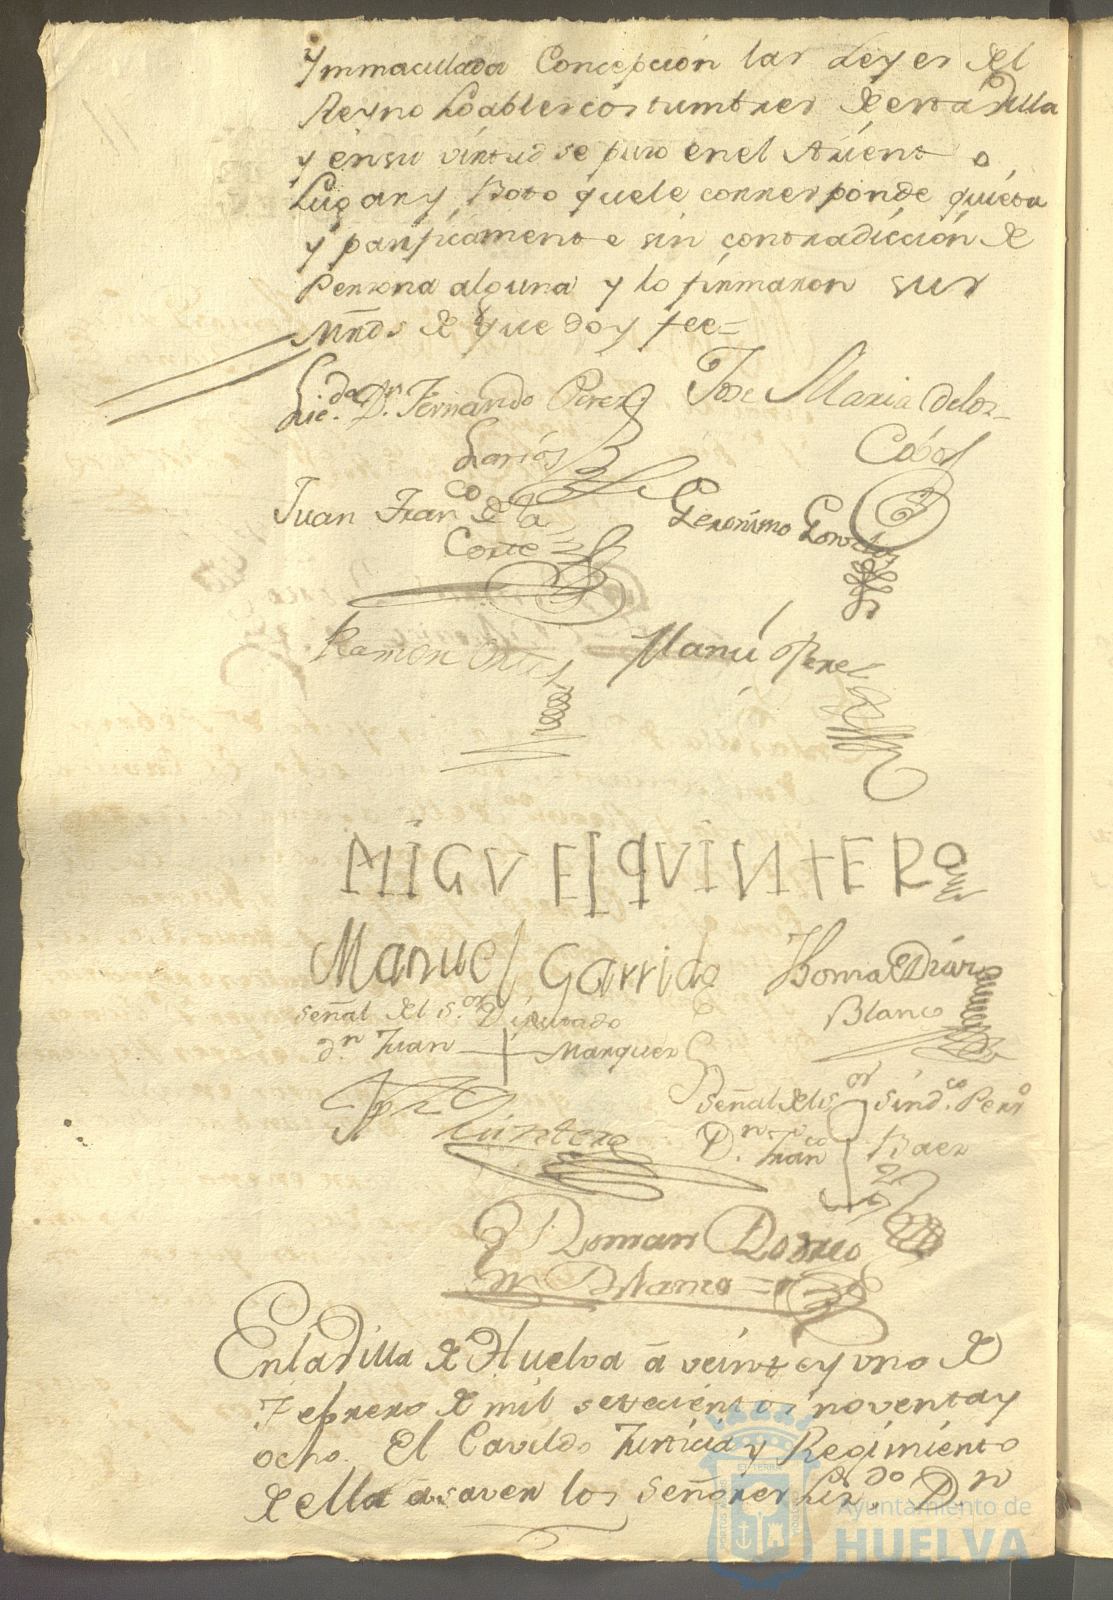 Ymmaculada Concepcion las Leyes del
Reyno Loables costumbres de esta Villa
y en su virtud se puso en el Asiento
Lugar y Boto que le corresponde quieta
y pasificamente sin contradiccion de
Persona alguna y lo firmaron sus
Mrds de que doy fee=
Licdo Dn Fernando Perez Jose Maria de los
Larios Cobos
Juan Franco de la Geronimo Gonzles
Corte
Ramon Ortel Manu Perez
MIGVEl qVINTERO
Manuel Garrido Thomas Diaz
Blanco
señal del Sor Diputado
dn Juan + Marquez
Señal del sor sindco Persro
Quintero
Dn Franco Baez
Roman Romeo
Blanco
En la Villa de Huelva a veinte y uno de
Febrero de mil setecientos noventa y
ocho. El Cavildo Justicia y Regimiento
de ella a saver los señores Lizdo Dn
Ayuntamiento de
HUELVA